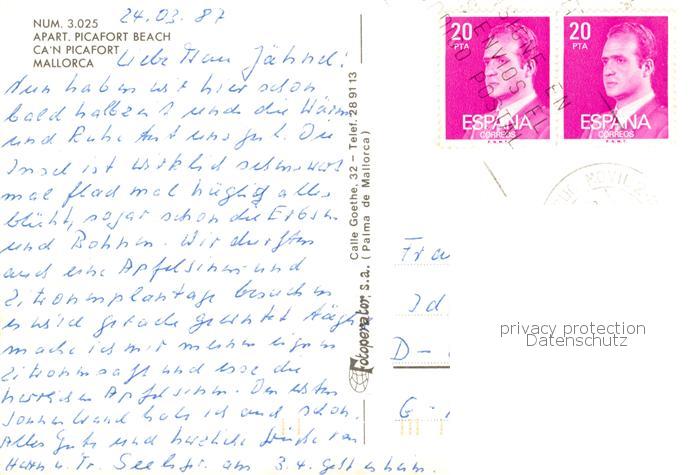 24.03.87
NUM. 3.025
APART. PICAFORT BEACH
CA'N PICAFORT
MALLORCA
Liebe Frau Jähnel!
Nun haben wir hier schon
bald halbzeit und die Wärme
und Ruhe tut uns gut. Die
Insel ist wirklich sehenswert
mal flach mal hüglig alles
blüht, sogar schon die Erbsen
und Bohnen. Wir durften
auch eine Apfelsinen und
Zitronenplantage besuchen
es wird gerade geerntet täglich
mache ich mir meinen eigenen
Zitronensaft und esse die
herrlichen Apfelsinen. Den ersten
Sonnenbrand habe ich auch schon.
Alles Gute und herzliche Grüße von
Herrn u. Fr. am 3.4. geht es heim.
Fotoperator, s.a.
Calle Goethe, 32 – Telef. 28 91 13
(Palma de Mallorca)
20
PTA
ESPAÑA
CORREOS
F.N.M.T.
20
PTA
ESPAÑA
CORREOS
F.N.M.T.
Fra
Id
D-
6-
privacy protection
Datenschutz